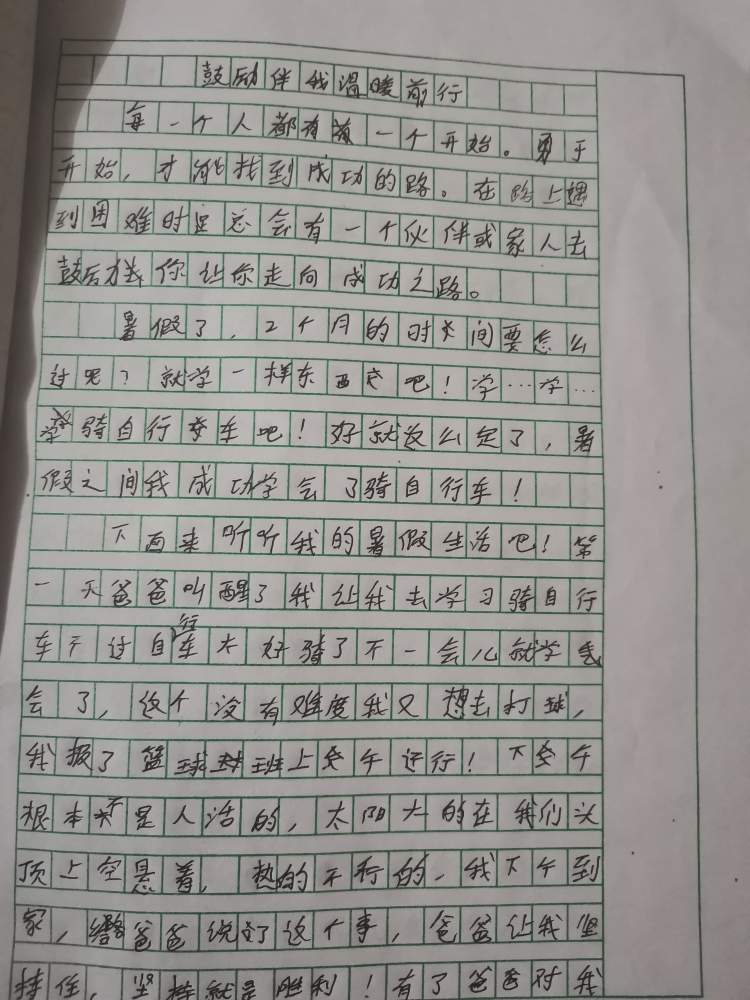 鼓励伴我温暖前行
每一个人都有一个开始。勇于
开始，才能找到成功的路。在路上遇
到困难时足总会有一个伙伴或家人去
鼓励你让你走向成功之路。
暑假了，2个月的时间要怎么
过呢？就学一样东西吧！学…学…
骑自行车吧！好就这么定了，暑
假之间我成功学会了骑自行车！
下面来听听我的暑假生活吧！第
一天爸爸叫醒了我让我去学习骑自行
车不过自行车太好骑了不一会儿就学
会了，这个没有难度我又想去打球，
我报了篮球班上午运行！下午
根本不是人活的，太阳大的在我们头
顶上空悬着，热的不行的，我下午到
家，爸爸说了这个事，爸爸让我坚
持住，坚持就是胜利！有了爸爸对我